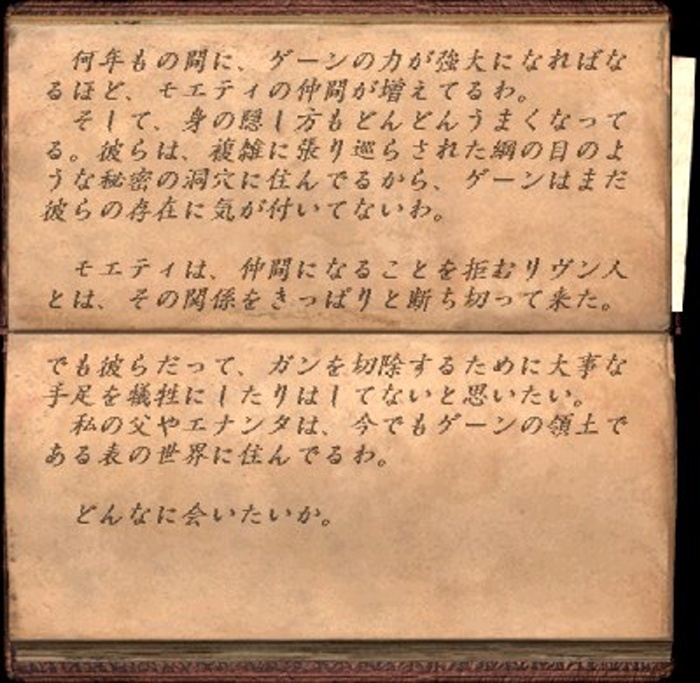 何年もの間に、ゲーンの力が強大になればな
るほど、モエティの仲間が増えてるわ。
そして、身の隠し方もどんどんうまくなって
る。彼らは、複雑に張り巡らされた綱の目のよ
うな秘密の洞穴に住んでるから、ゲーンはまだ
彼らの存在に気が付いてないわ。
モエティは、仲間になることを拒むリヴン人
とは、その関係をきっぱりと断ち切って来た。
でも彼らだって、ガンを切除するために大事な
手足を犠牲にしたりはしてないと思いたい。
私の父やエナンタは、今でもゲーンの領土で
ある表の世界に住んでるわ。
どんなに会いたいか。